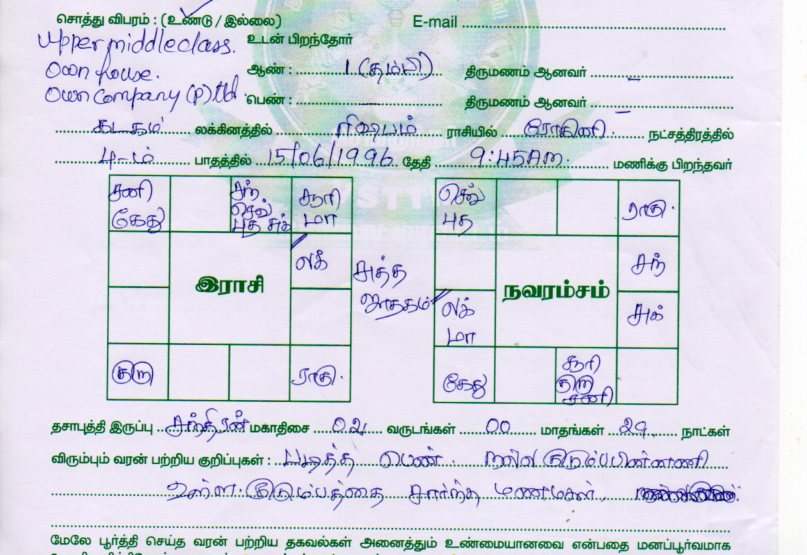 சொத்து விபரம் : (உண்டு / இல்லை) E-mail
Upper middle class. உடன் பிறந்தோர்
Own house. ஆண் : 1 (தம்பி) திருமணம் ஆனவர் –
Own Company (P) ltd. பெண் : திருமணம் ஆனவர் –
கடகம் லக்கினத்தில் ரிஷபம் ராசியில் ரோகிணி நட்சத்திரத்தில்
4-ம் பாதத்தில் 15/06/1996 தேதி 9:45 Am. மணிக்கு பிறந்தவர்
சனி கேது சந் செவ் புத சுக் சூரி மா செவ் புத ராகு.
லக் சந்
இராசி சுத்த ஜாதகம் நவரம்சம்
லக் மா சுக்
குரு ராகு. கேது சூரி குரு சனி
தசாபுத்தி இருப்பு சந்திரன் மகாதிசை 02 வருடங்கள் 00 மாதங்கள் 29 நாட்கள்
விரும்பும் வரன் பற்றிய குறிப்புகள் : படித்த பெண். நல்ல குடும்ப பின்னணி
உள்ள குடும்பத்தை சார்ந்த மணமகள்.
மேலே பூர்த்தி செய்த வரன் பற்றிய தகவல்கள் அனைத்தும் உண்மையானவை என்பதை மனப்பூர்வமாக